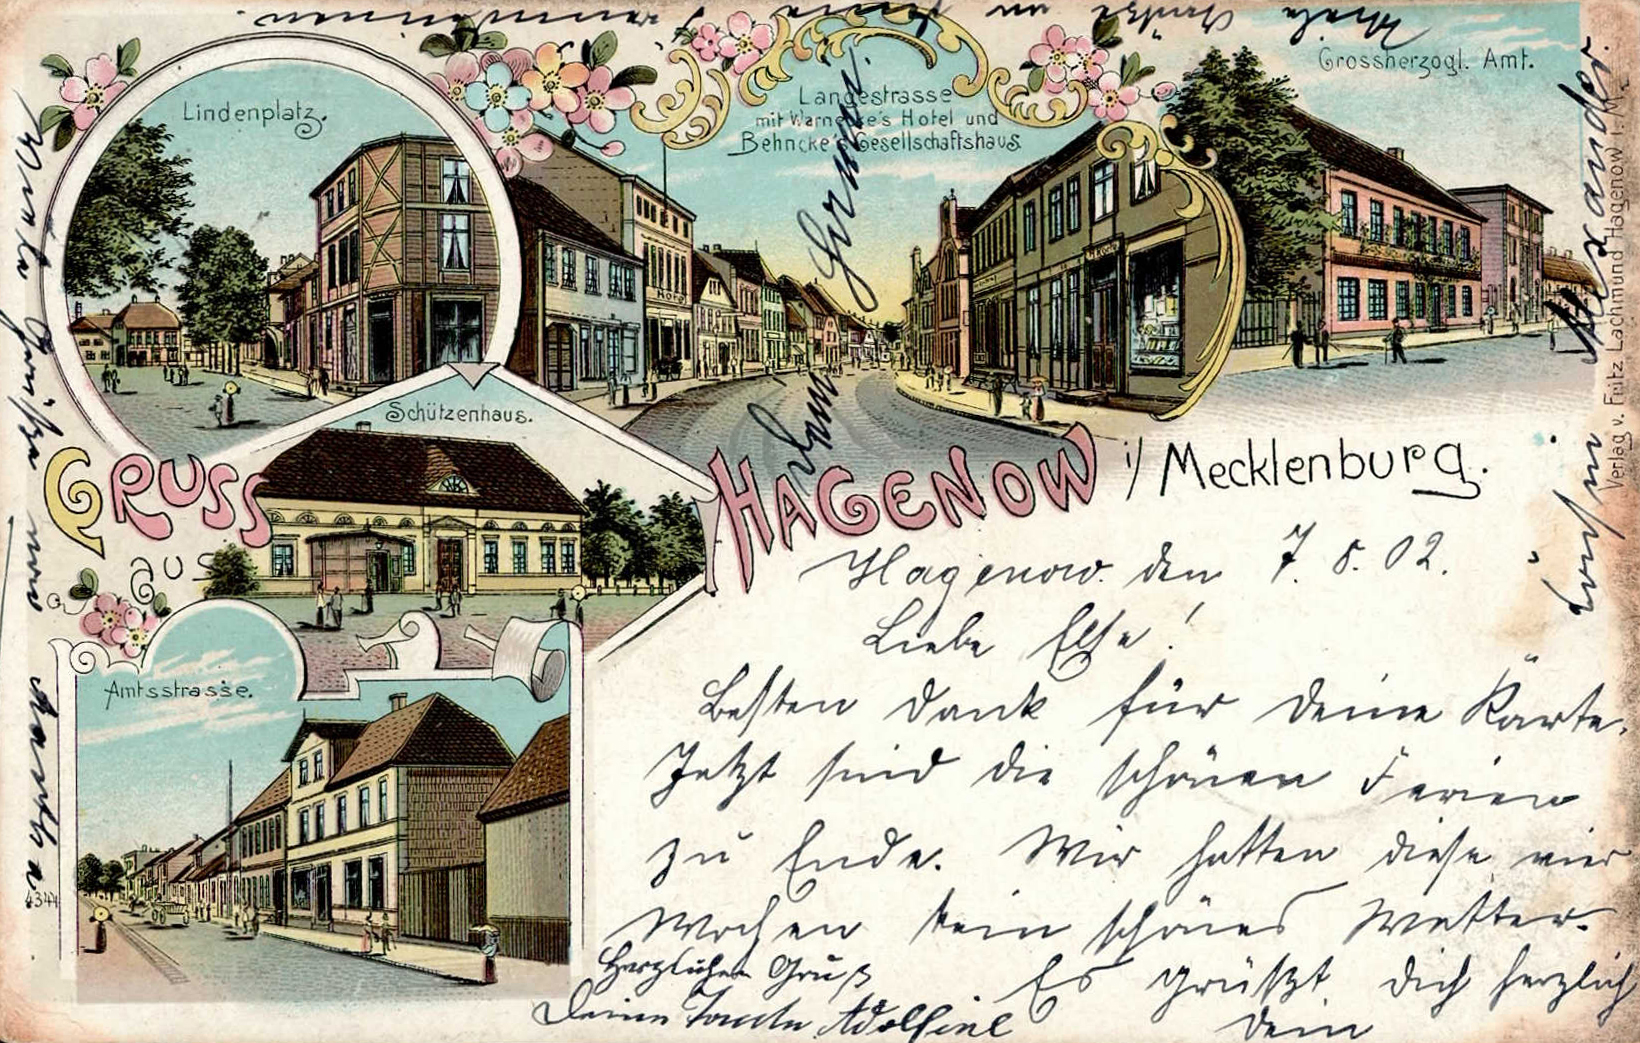 Viele Grüße an
Lindenplatz.
Landestrasse
mit Warnecke's Hotel und
Behncke's Gesellschaftshaus.
Grossherzogl. Amt.
Schützenhaus.
Gruss
aus
Hagenow i/ Mecklenburg.
Amtsstrasse.
4344
Verlag v. Fritz Lachmund Hagenow i. M.
Hagenow. den 7. 8. 02.
Liebe Else!
Besten Dank für Deine Karte.
Jetzt sind die schönen Ferien
zu Ende. Wir hatten diese vier
Wochen kein schönes Wetter.
Es grüßt Dich herzlich
Dein
Herzlichen Gruß
Deine Tante Adolfine
Viele Grüße von